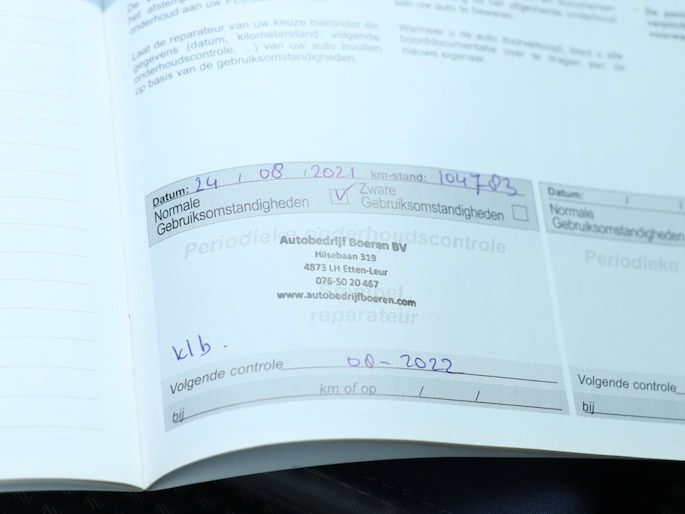 het afstem
onderhoud aan uw
Laat de reparateur van uw keuze hieronder de
gegevens (datum, kilometerstand, volgende
onderhoudscontrole, ...) van uw auto invullen
op basis van de gebruiksomstandigheden.
Wanneer u de auto doorverkoopt, dient u alle
boorddocumentatie over te dragen aan de
nieuwe eigenaar.
Datum: 24 / 08 / 2021 km-stand: 104783
Normale Gebruiksomstandigheden V Zware Gebruiksomstandigheden
Periodieke onderhoudscontrole
Autobedrijf Boeren BV
Hilsebaan 319
4873 LH Etten-Leur
076-50 20 467
www.autobedrijfboeren.com
reparateur
klb.
Volgende controle 08-2022
km of op / /
bij
Datum: / /
Normale
Gebruiksomstandigheden
Periodieke
Volgende controle
bij